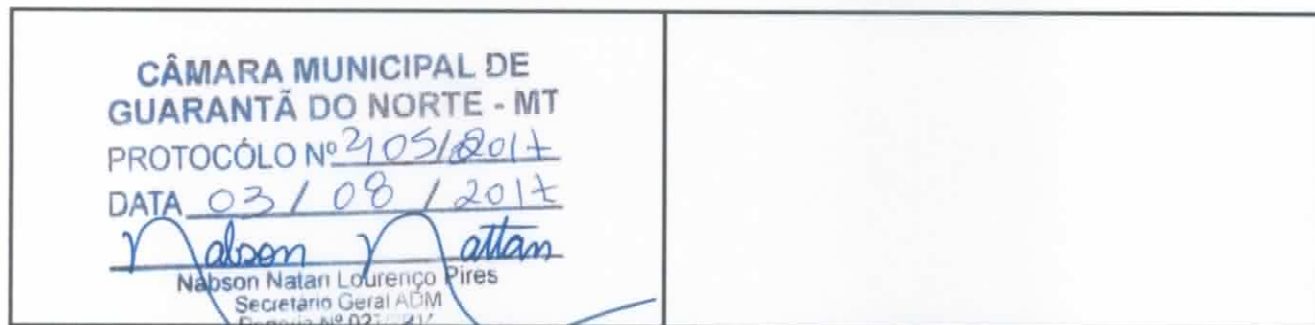 CÂMARA MUNICIPAL DE
GUARANTÃ DO NORTE - MT
PROTOCÓLO Nº 2105/2017
DATA 03 / 08 / 2017
Nabson Nattan
Nabson Natan Lourenço Pires
Secretário Geral ADM
Nº 021